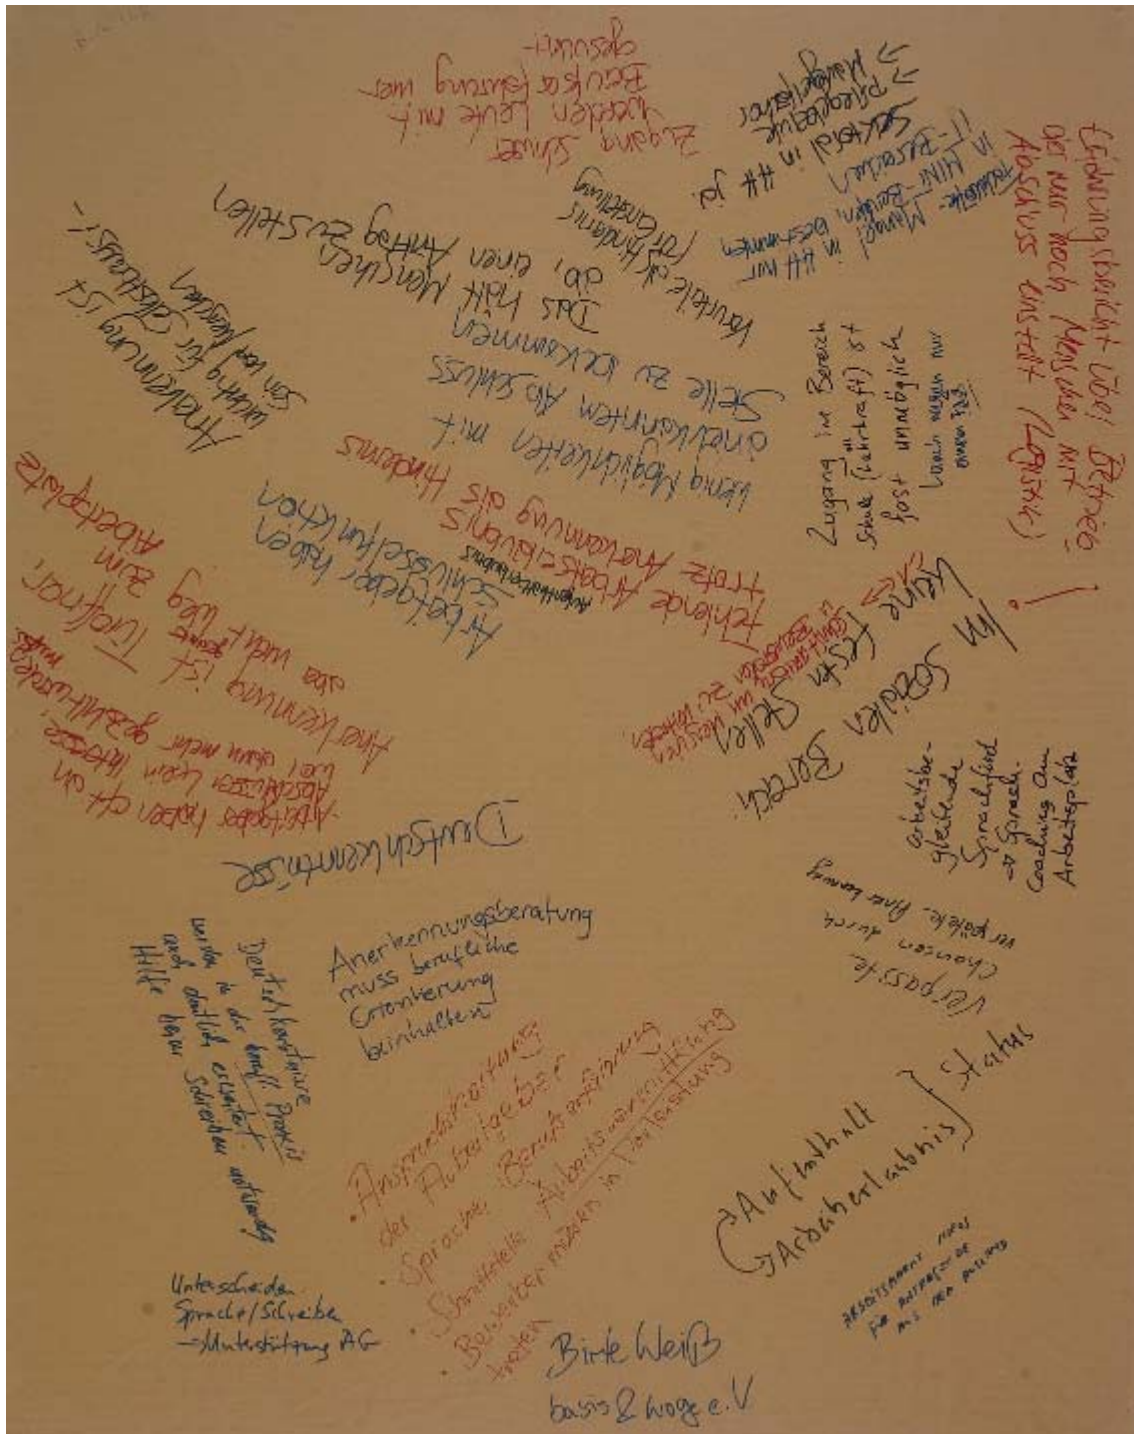 Zugang schwer
werden Leute mit
Berufserfahrung wer
gesucht
Fachkräfte-Mangel in HH nur
in MINT-Berufen, bestimmten
IT-Bereichen
Sektoral in HH ja.
→ Pflegeberufe
→
Erfahrungsbericht über Betrieb
der nur noch Menschen mit
Abschluss einstellt (Logistik)
!
Vorurteile als Hindernis
für Einstellung
Das hält Menschen
ab, einen Antrag zu stellen
Anerkennung ist
wichtig für Selbstbewusst-
sein von Menschen
wenig Möglichkeiten mit
anerkanntem Abschluss
Stelle zu bekommen
Zugang im Bereich
Schule (Lehrkraft) ist
fast unmöglich
wegen nur
einem Fach
Fehlende Arbeitserlaubnis
Aufenthaltserlaubnis
trotz Anerkennung als Hindernis
Arbeitgeber haben
Schlüsselfunktion
Anerkennung ist Türöffner,
aber nicht Weg zum
Arbeitsplatz
Arbeitgeber haben oft an
Abschlüssen kein Interesse,
weil dann mehr gezahlt werden
muß.
Im
sozialen
Bereich
keine festen Stellen
Deutschkenntnisse
arbeitsbe-
gleitende
Sprachförd
→ Sprach-
Coaching am
Arbeitsplatz
verpasste
Chancen durch
verspätete Anerkennung
Anerkennungsberatung
muss berufliche
Orientierung
beinhalten
Deutschkenntnisse
werden in der berufl. Praxis
noch deutlich erweitert.
Hilfe beim Schreiben notwendig
Unterscheiden
Sprache/Schreiben
→ Unterstützung AG
• Anspruchshaltung
der Arbeitgeber
• Sprache, Berufserfahrung
• Schnittstelle Arbeitsvermittlung
• Bewerber müssen in Vorleistung
treten
→ Aufenthalt
→ Arbeitserlaubnis
} Status
Birte Weiß
basis & woge e.V